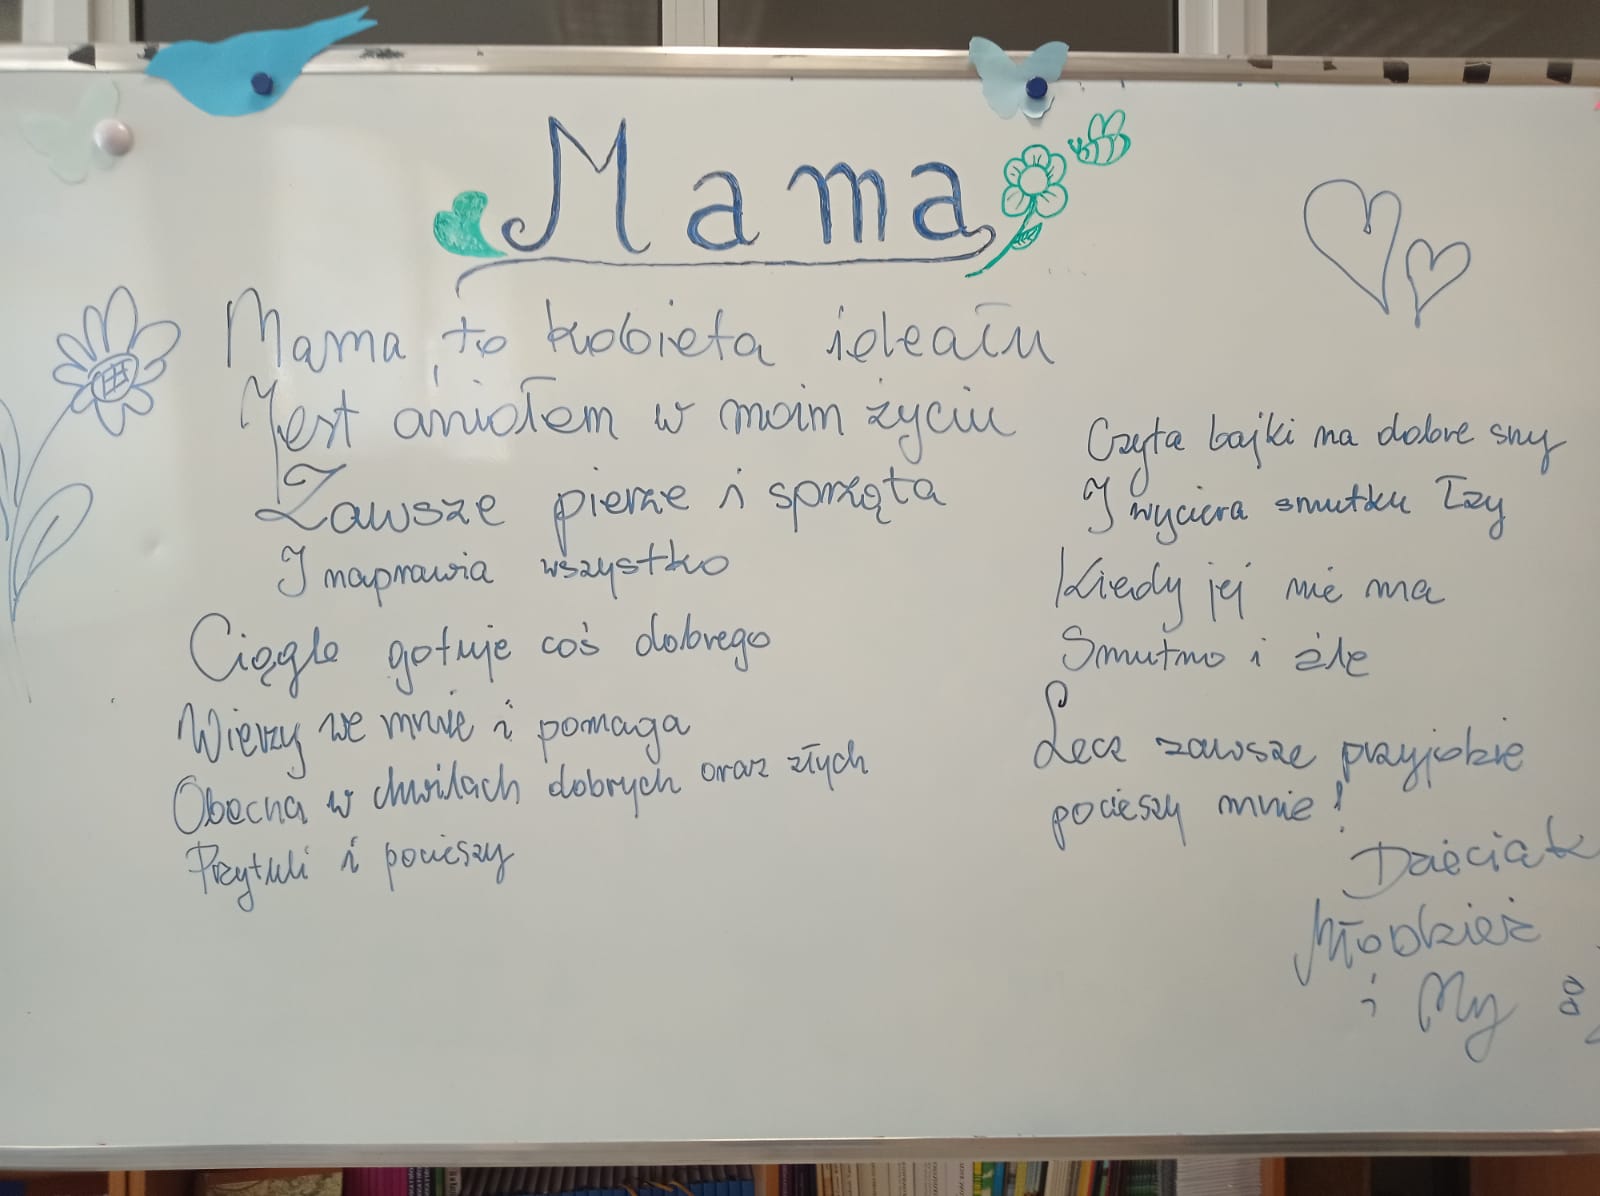 Mama
Mama to kobieta ideału
Jest aniołem w moim życiu
Zawsze pierze i sprząta
I naprawia wszystko
Ciągle gotuje coś dobrego
Wierzy we mnie i pomaga
Obecna w chwilach dobrych oraz złych
Przytuli i pocieszy
Czyta bajki na dobre sny
I wyciera smutku łzy
Kiedy jej nie ma
Smutno i źle
Lecz zawsze przyjdzie
pocieszy mnie!
Dzieciak
Młodzież
i My